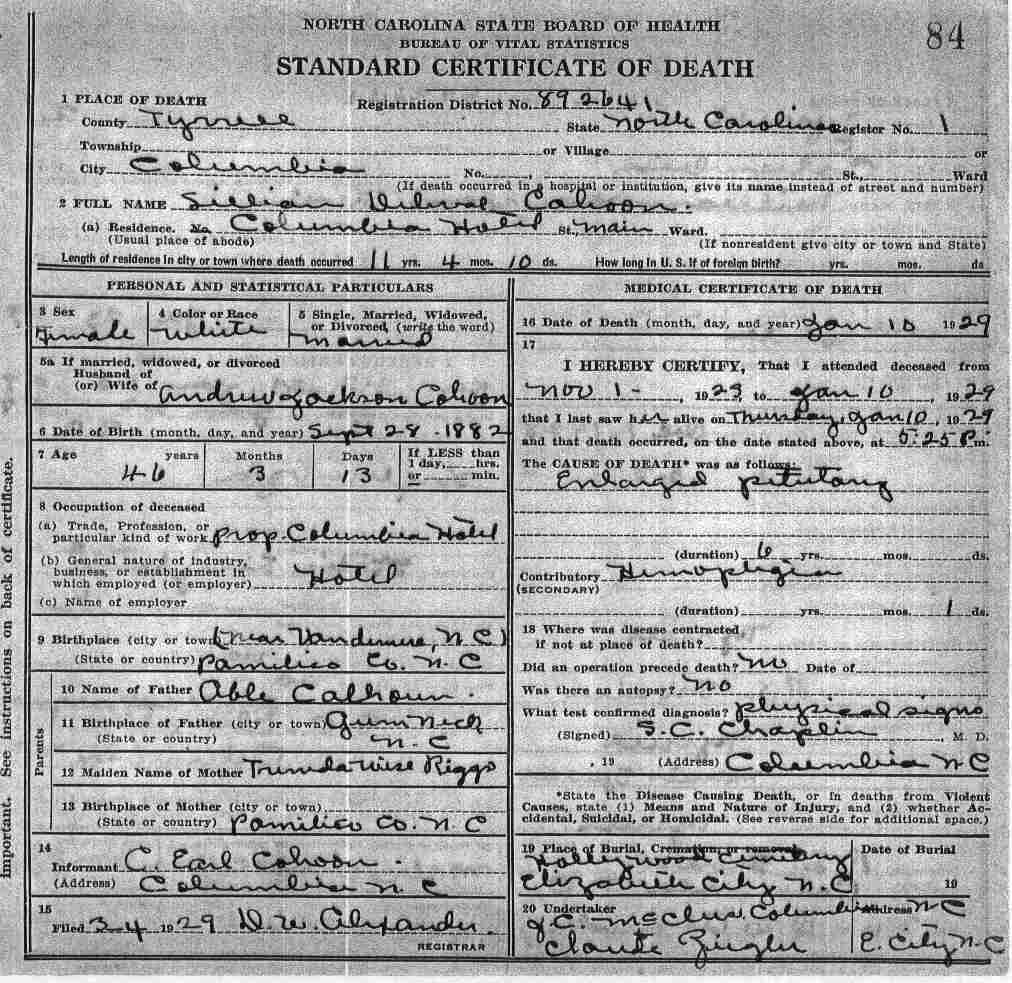 84
NORTH CAROLINA STATE BOARD OF HEALTH
BUREAU OF VITAL STATISTICS
STANDARD CERTIFICATE OF DEATH
1 PLACE OF DEATH
Registration District No. 892641
County Tyrrell State North Carolina Register No. 1
Township or Village or
City Columbia No. , St., Ward
(If death occurred in a hospital or institution, give its name instead of street and number)
2 FULL NAME Cahoon.
(a) Residence. No. Columbia Hotel St., Main Ward.
(Usual place of abode) (If nonresident give city or town and State)
Length of residence in city or town where death occurred 11 yrs. 4 mos. 10 ds. How long in U. S. if of foreign birth? yrs. mos. ds
PERSONAL AND STATISTICAL PARTICULARS
3 Sex
Female
4 Color or Race
White
5 Single, Married, Widowed,
or Divorced, (write the word)
Married
5a If married, widowed, or divorced
Husband of
(or) Wife of Andrew Jackson Cohoon
6 Date of Birth (month, day, and year) Sept 28 . 1882
7 Age years Months Days
46 3 13
If LESS than
1 day, hrs.
or min.
8 Occupation of deceased
(a) Trade, Profession, or
particular kind of work Prop. Columbia Hotel
(b) General nature of industry,
business, or establishment in
which employed (or employer) Hotel
(c) Name of employer
9 Birthplace (city or town) (near Vandemere, N C)
(State or country) Pamlico Co. N. C
Parents
10 Name of Father Able Calhoun.
11 Birthplace of Father (city or town) Gum Neck
(State or country) N. C
12 Maiden Name of Mother Wise Riggs
13 Birthplace of Mother (city or town)
(State or country) Pamlico Co. N. C
14
Informant C. Earl Cohoon.
(Address) Columbia N C
15
Filed 3-4 1929 D. W. Alexander.
REGISTRAR
MEDICAL CERTIFICATE OF DEATH
16 Date of Death (month, day, and year) Jan 10 1929
17
I HEREBY CERTIFY, That I attended deceased from
Nov 1 - , 1923 to Jan 10 , 1929
that I last saw her alive on Thursday, Jan 10, 1929
and that death occurred, on the date stated above, at 5:25 P.m.
The CAUSE OF DEATH* was as follows:
Enlarged pitutary
(duration) 6 yrs. mos. ds.
Contributory
(SECONDARY)
(duration) yrs. mos. 1 ds.
18 Where was disease contracted
if not at place of death?
Did an operation precede death? No Date of
Was there an autopsy? No
What test confirmed diagnosis? Physical signs
(Signed) S. C. Chaplin , M. D.
, 19 (Address) Columbia N C
*State the Disease Causing Death, or in deaths from Violent
Causes, state (1) Means and Nature of Injury, and (2) whether Ac-
cidental, Suicidal, or Homicidal. (See reverse side for additional space.)
19 Place of Burial, Cremation, or removal
Hollywood Cemetary
Elizabeth City N. C
Date of Burial
19
20 Undertaker Address
J. C. Columbia N C
Claude Zeigler E. City N. C
Important. See instructions on back of certificate.